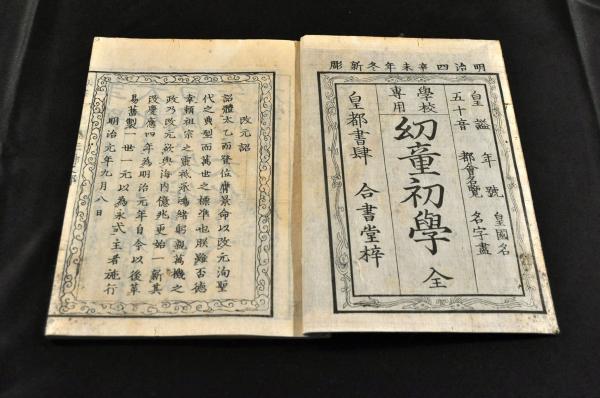 明治四辛未年冬新彫
皇謚 年號 皇國名
五十音 都會名覽 名字盡
學校專用
幼童初學 全
皇都書肆 合書堂梓
改元詔
詔體太乙而登位膺景命以改元洵聖
代之典型而萬世之標準也朕雖否德
幸賴祖宗之靈祇承鴻緒躬親萬機之
政乃改元欲與海内億兆更始一新其
改慶應四年為明治元年自今以後革
易舊製一世一元以為永式主者施行
明治元年九月八日